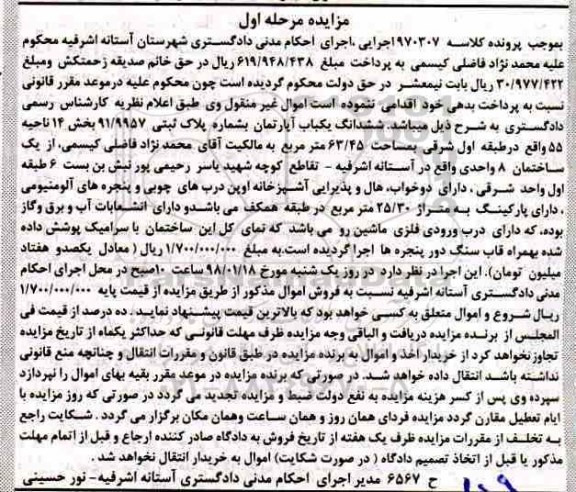 مزایده مرحله اول
بموجب پرونده کلاسه ۹۷۰۳۰۷اجرایی ،اجرای احکام مدنی دادگستری شهرستان آستانه اشرفیه محکوم
علیه محمد نژاد فاضلی کیسمی به پرداخت مبلغ ۶۱۹/۹۴۸/۴۳۸ ریال در حق خانم صدیقه زحمتکش ومبلغ
۳۰/۹۷۷/۴۲۲ ریال بابت نیمعشر در حق دولت محکوم گردیده است چون محکوم علیه درموعد مقرر قانونی
نسبت به پرداخت بدهی خود اقدامی ننموده است اموال غیر منقول وی طبق اعلام نظریه کارشناس رسمی
دادگستری به شرح ذیل میباشد.ششدانگ یکباب آپارتمان بشماره پلاک ثبتی ۹۱/۹۹۵۷ بخش ۱۴ ناحیه
۵۵ واقع درطبقه اول شرقی بمساحت ۶۳/۴۵ متر مربع به مالکیت آقای محمد نژاد فاضلی کیسمی، از یک
ساختمان ۸ واحدی واقع در آستانه اشرفیه - تقاطع کوچه شهید یاسر رحیمی پور نبش بن بست ۶ طبقه
اول واحد شرقی ، دارای دوخواب، هال و پذیرایی آشپزخانه اوپن درب های چوبی و پنجره های آلومنیومی
، دارای پارکینگ به متراژ ۲۵/۳۰ متر مربع در طبقه همکف می باشدو دارای انشعابات آب و برق وگاز
بوده، که دارای درب ورودی فلزی ماشین رو می باشد که نمای کل این ساختمان با سرامیک پوشش داده
شده بهمراه قاب سنگ دور پنجره ها اجرا گردیده است.به مبلغ ۱/۷۰۰/۰۰۰/۰۰۰ ریال ( معادل یکصدو هفتاد
میلیون تومان). این اجرا در نظر دارد در روز یک شنبه مورخ ۹۸/۰۱/۱۸ ساعت ۱۰صبح در محل اجرای احکام
مدنی دادگستری آستانه اشرفیه نسبت به فروش اموال مذکور از طریق مزایده از قیمت پایه ۱/۷۰۰/۰۰۰/۰۰۰
ریال شروع و اموال متعلق به کسی خواهد بود که بالاترین قیمت پیشنهاد نماید. ده درصد از قیمت فی
المجلس از برنده مزایده دریافت و الباقی وجه مزایده ظرف مهلت قانونی که حداکثر یکماه از تاریخ مزایده
تجاوز نخواهد کرد از خریدار اخذ و اموال به برنده مزایده در طبق قانون و مقررات انتقال و چنانچه منع قانونی
نداشته باشد انتقال داده خواهد شد. در صورتی که برنده مزایده در موعد مقرر بقیه بهای اموال را نپردازد
سپرده وی پس از کسر هزینه مزایده به نفع دولت ضبط و مزایده تجدید می گردد در صورتی که روز مزایده با
ایام تعطیل مقارن گردد مزایده فردای همان روز و همان ساعت وهمان مکان برگزار می گردد . شکایت راجع
به تخلف از مقررات مزایده ظرف یک هفته از تاریخ فروش به دادگاه صادر کننده ارجاع و قبل از اتمام مهلت
مذکور یا قبل از اتخاذ تصمیم دادگاه ( در صورت شکایت) اموال به خریدار انتقال نخواهد شد .
ح ۶۵۶۷ مدیر اجرای احکام مدنی دادگستری آستانه اشرفیه- نور حسینی